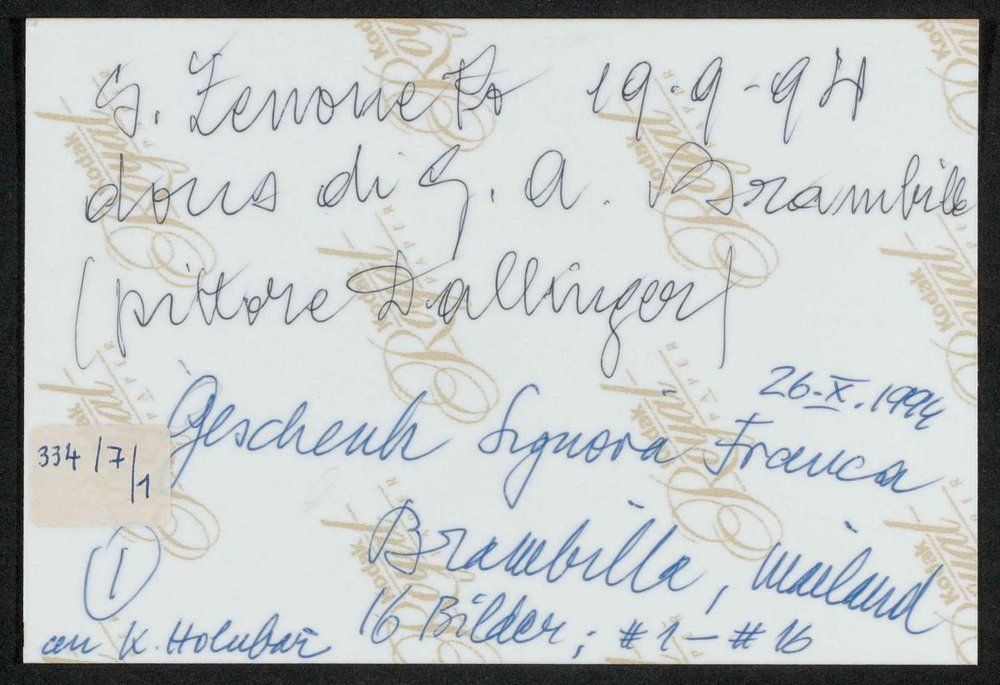 S. Zenone Po 19.9-94
dono di G. A. Brambilla
(pittore Dallinger)
26.X.1994
Geschenk Signora Franca
334/7/1
Brambilla, Mailand
1
16 Bilder; #1-#16
an K. Holubar
Kodak
Royal
PAPER